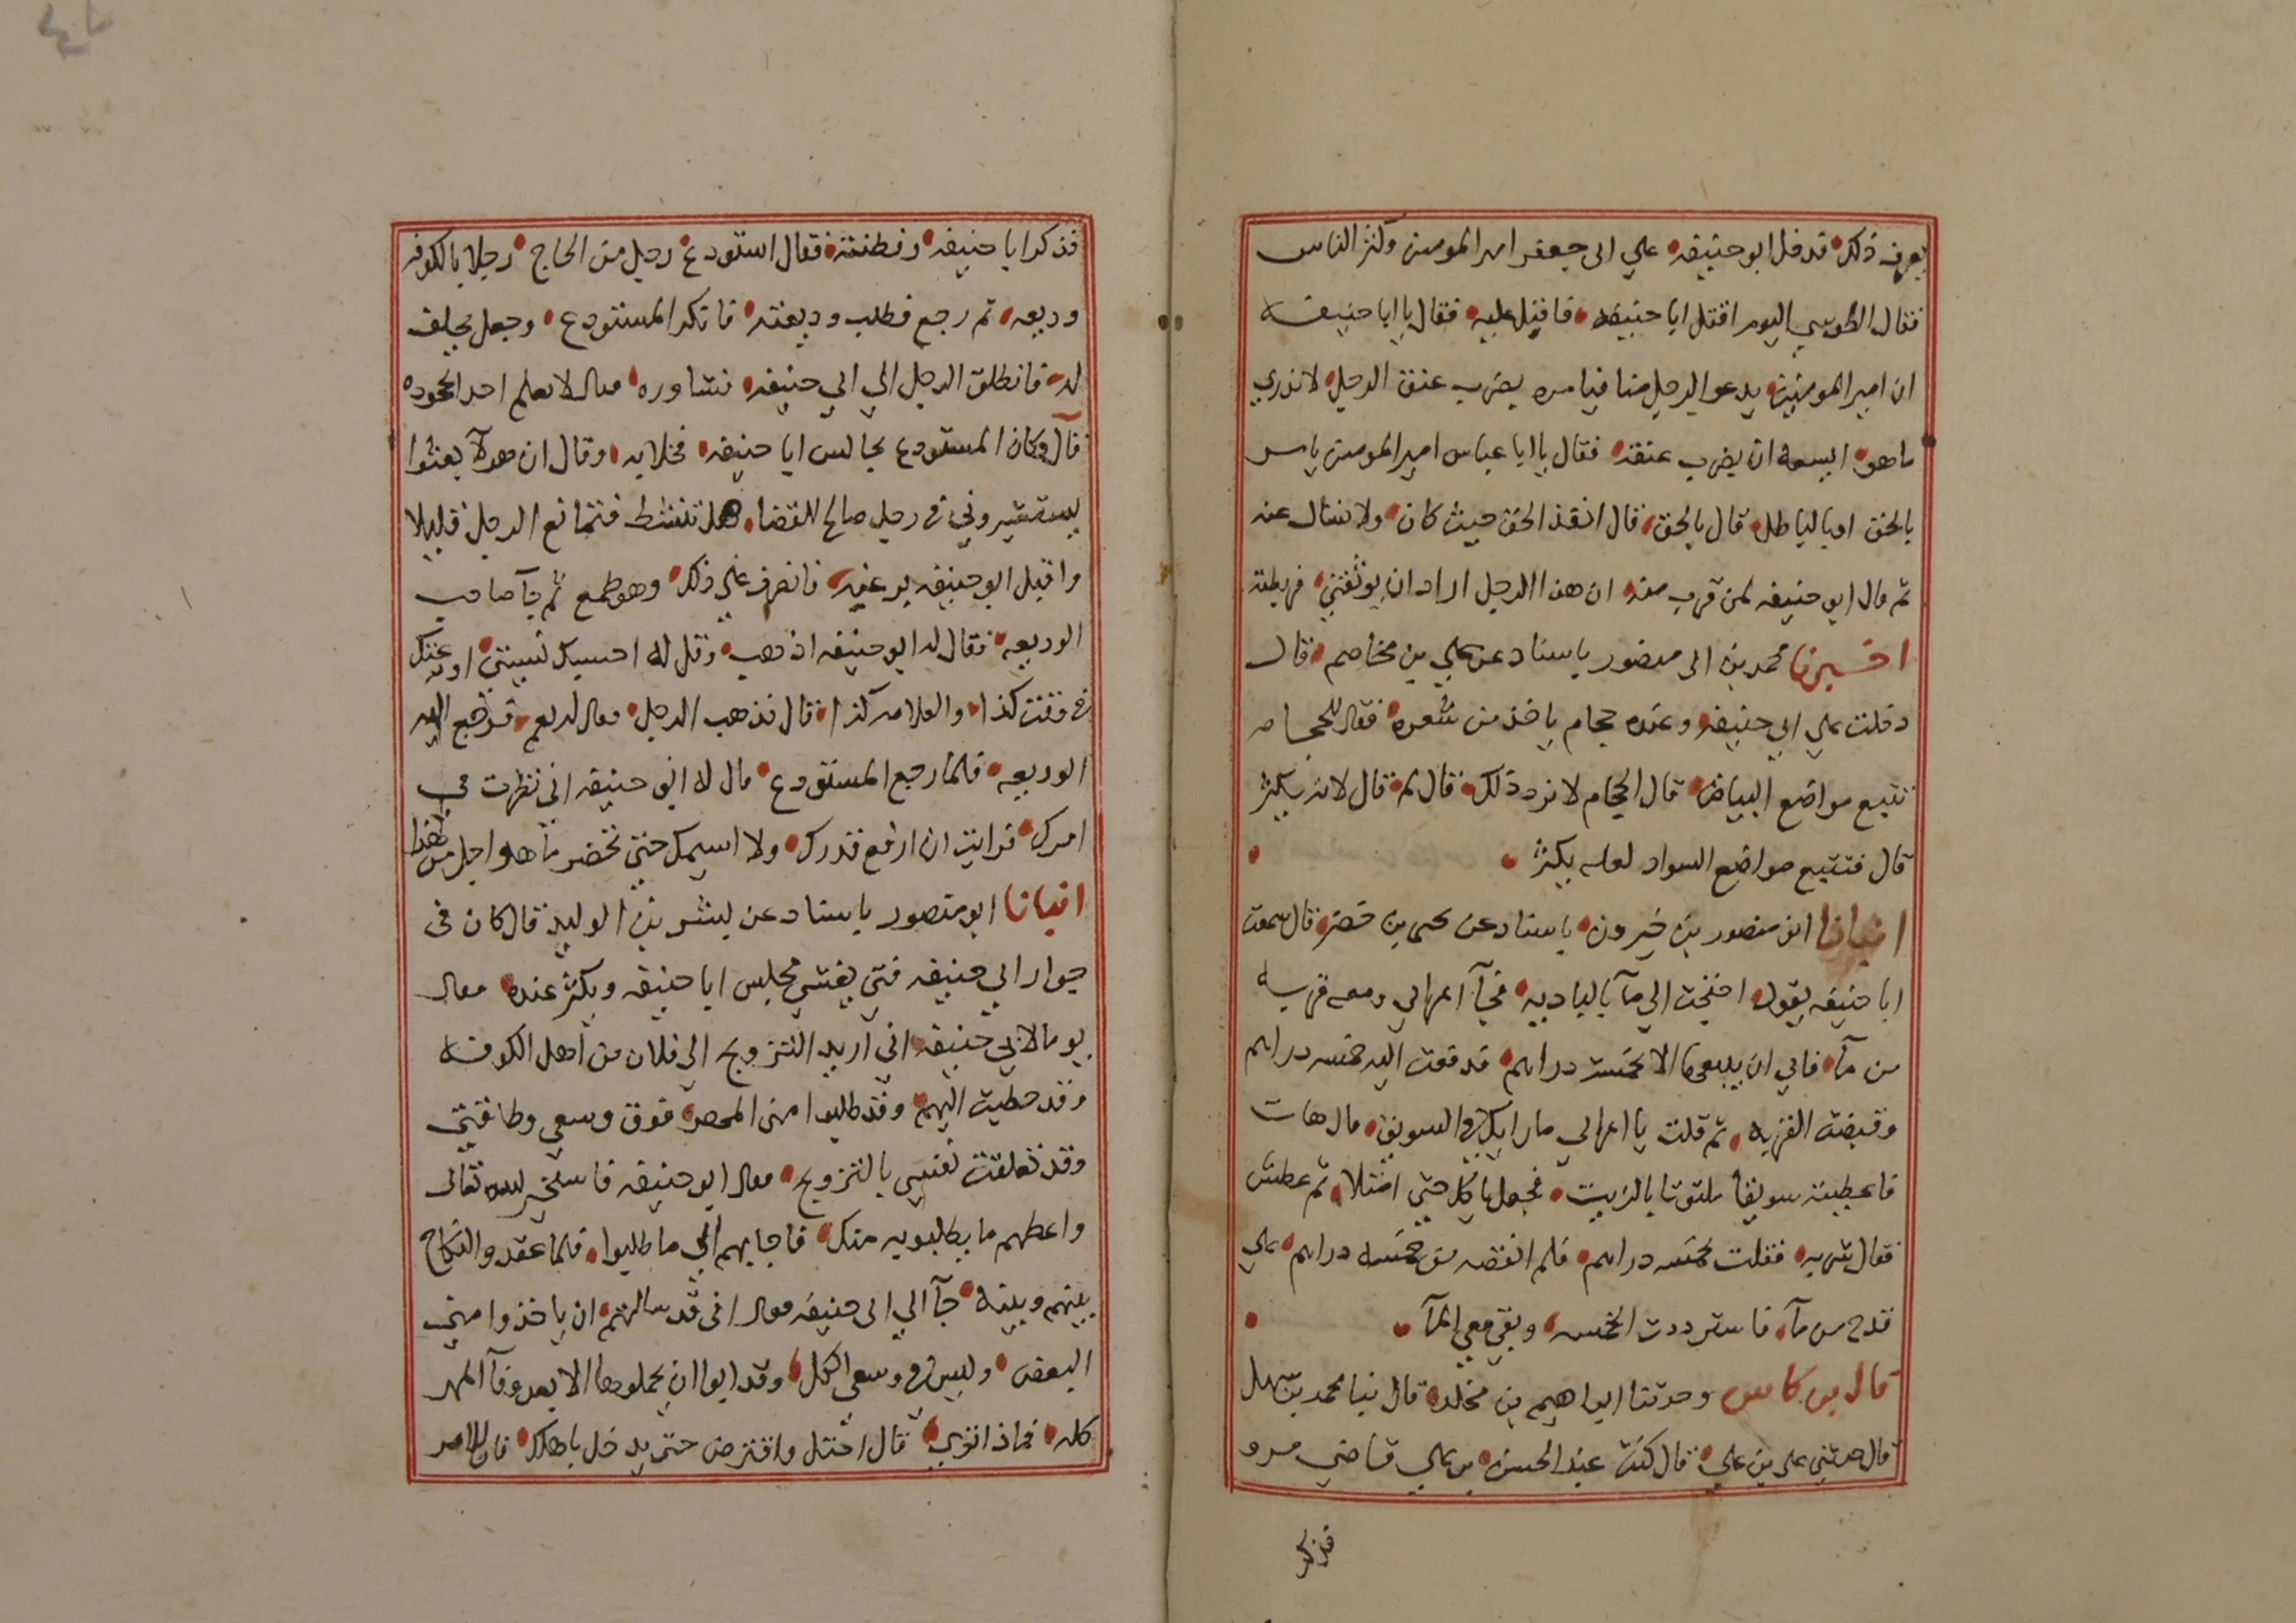 يعرف ذلك فدخل ابو حنيفه علي ابى جعفر امير المومنين وكثر الناس
فقال الطوسي اليوم اقتل ابا حنيفه فاقبل عليه فقال يا ابا حنيفه
ان امير المومنين يدعو الرجل منا فيامره يضرب عنق الرجل لا ندري
ما هو ايسعه ان يضرب عنقه فقال يا ابا عباس امير المومنين يامر
بالحق او بالباطل قال بالحق قال انفذ الحق حيث كان ولا تسال عنه
ثم قال ابو حنيفه لمن قرب منه ان هذا الرجل اراد ان يوثقني فربطته
اخبرنا محمد بن ابى منصور باسناد عن علي بن مخاصم قال
دخلت علي ابي حنيفه وعنده حجام ياخذ من شعره فقال للحجام
تتبع مواضع البياض قال الحجام لا نرد ذلك قال لم قال لانه يكثر
قال فتتبع مواضع السواد لعله يكثر
انبانا ابو منصور بن خيرون باسناد عن يحيى بن خضر قال سمعت
ابا حنيفه يقول احتجت الي مآ بالباديه فجآ اعرابي ومعه قربه
من مآ فابي ان يبيعها الا بخمسة دراهم فدفعت اليه خمسه دراهم
وقبضته القربه ثم قلت يا اعرابي ما رايك في السويق قال هات
فاعطيته سويقا ملتوتا بالزيت فجعل ياكل حتى امتلا ثم عطش
فقال شربه فقلت بخمسه دراهم فلم انقصه من خمسه دراهم علي
قدح من مآ فاسترددت الخمسه وبقي معي المآ
قال بن كاس وحدثنا ابراهيم بن مخلد قال نبا محمد بن سهل
قال حدثني علي بن علي قال كنت عند الحسن بن علي قاضي مرو
فذكر
فذكر ابا حنيفه وفطنته فقال استودع رجل من الحاج رجلا بالكوفه
وديعه ثم رجع فطلب وديعته فانكر المستودع وجعل يحلف
له فانطلق الرجل الي ابي حنيفه فشاوره فقال لا تعلم احدا بجحوده
قال وكان المستودع يجالس ابا حنيفه فخلا به وقال ان هولآ بعثوا
يستشيروني في رجل صالح للقضا هل تنشط فتمانع الرجل قليلا
واقبل ابو حنيفه يرغبه فانصرف علي ذلك وهو طمع ثم جآ صاحب
الوديعه فقال له ابو حنيفه اذهب وقل له احسبك نسيتني اودعتك
في وقت كذا والعلامه كذا قال فذهب الرجل وقال له نعم فدفع اليه
الوديعه فلما رجع المستودع قال له ابو حنيفه اني نظرت في
امرك فرايت ان ارفع قدرك ولا اسيمك حتى تحضر ما هو اجل من هذا
انبانا ابو منصور باسناد عن بشر بن الوليد قال كان في
جوار ابي حنيفه فتى يغشي مجلس ابا حنيفه ويكثر عنده فقال
يوما لابي حنيفه اني اريد التزويج الى فلان من أهل الكوفه
وقد خطبت اليهم وقد طلبوا منى المهر فوق وسعي وطاقتي
وقد تعلقت نفسي بالتزويج فقال ابو حنيفه فاستخير لله تعالى
واعطهم ما يطلبونه منك فاجابهم الي ما طلبوا فلما عقدو النكاح
بينهم وبينه جآ الي ابى حنيفه فقال انى قد سالتهم ان ياخذوا مني
البعض وليس في وسعي الكل وقد ابوا ان يحملوها الا بعد وفآ المهر
كله فماذا ترى قال احتل واقترض حتى يدخل باهلك فان الامر